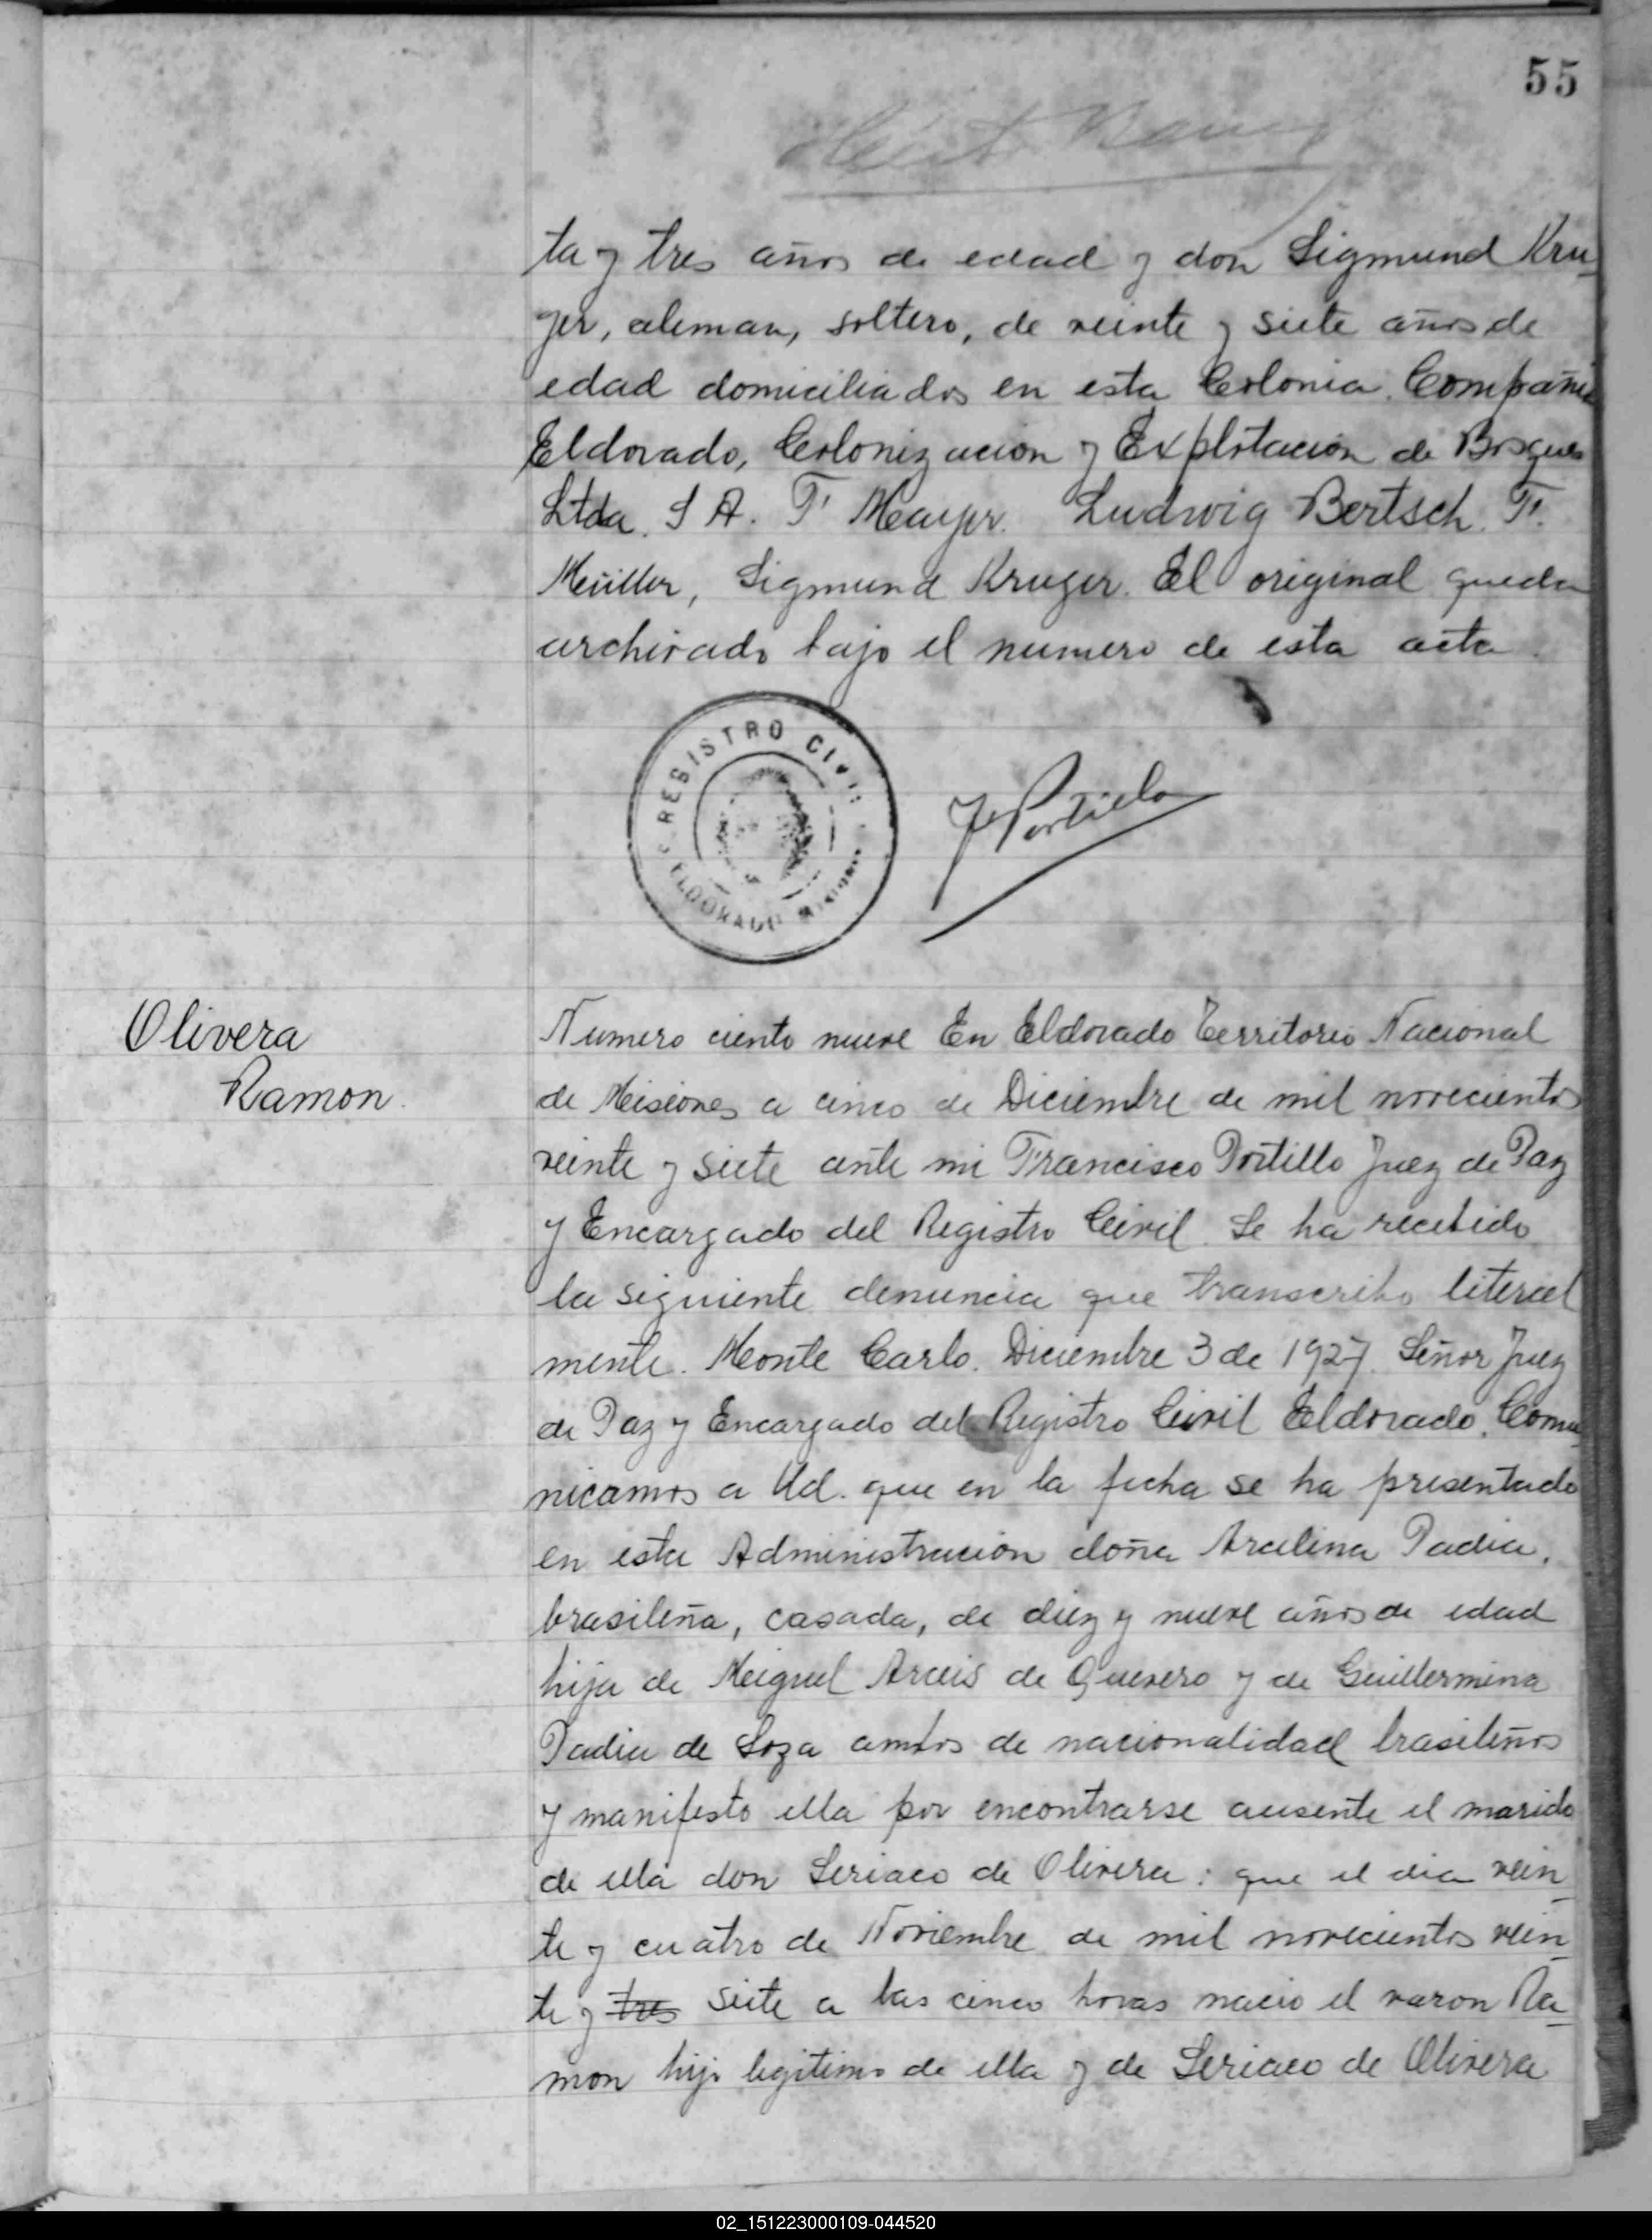 55
ta y tres años de edad y don Sigmund Kru-
ger, aleman, soltero, de veinte y siete años de
edad domiciliados en esta Colonia. Compañia
Eldorado, Colonizacion y Explotacion de Bosques
Ltda. S A. F Mayer. Ludwig Bertsch. F.
Müller, Sigmund Kruger. El original queda
archivado bajo el numero de esta acta.
REGISTRO CIVIL
ELDORADO
F Portillo
Olivera
Ramon.
Numero ciento nueve En Eldorado Territorio Nacional
de Misiones a cinco de Diciembre de mil novecientos
veinte y siete ante mi Francisco Portillo Juez de Paz
y Encargado del Registro Civil. Se ha recibido
la siguiente denuncia que transcribo literal
mente. Monte Carlo. Diciembre 3 de 1927. Señor Juez
de Paz y Encargado del Registro Civil Eldorado. Comu-
nicamos a Ud. que en la fecha se ha presentado
en esta Administracion doña Aralina Padia,
brasileña, casada, de diez y nueve años de edad
hija de Miguel de y de Guillermina
Padia de Soza ambos de nacionalidad brasileños
y manifesto ella por encontrarse ausente el marido
de ella don Seriaco de Olivera: que el dia vein-
te y cuatro de Noviembre de mil novecientos vein-
te y tres siete a las cinco horas nacio el varon Ra-
mon hijo legitimo de ella y de Seriaco de Olivera
02_151223000109-044520